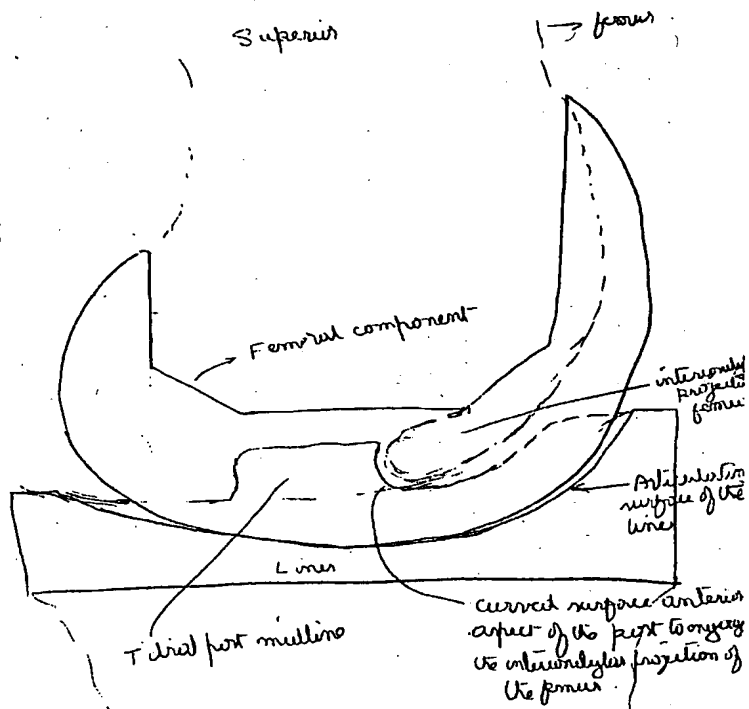 Superius
→ femus
Femoral component
intercondyla
projectio
femu
Articulatin
surface of the
liner
Liner
Tibial post midline
curved surface anterior
aspect of the post to engage
the intercondylar projection of
the femur.